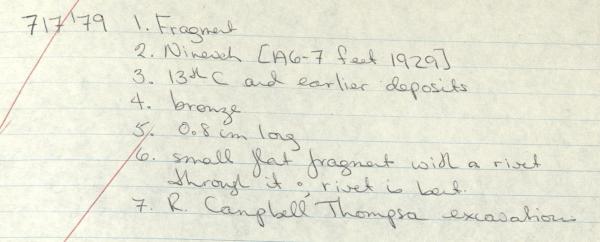 717'79 1. Fragment
2. Nineveh [A6-7 feet 1929]
3. 13th C and earlier deposits
4. bronze
5. 0.8 cm long
6. small flat fragment with a rivet
through it; rivet is bent.
7. R. Campbell Thompson excavations